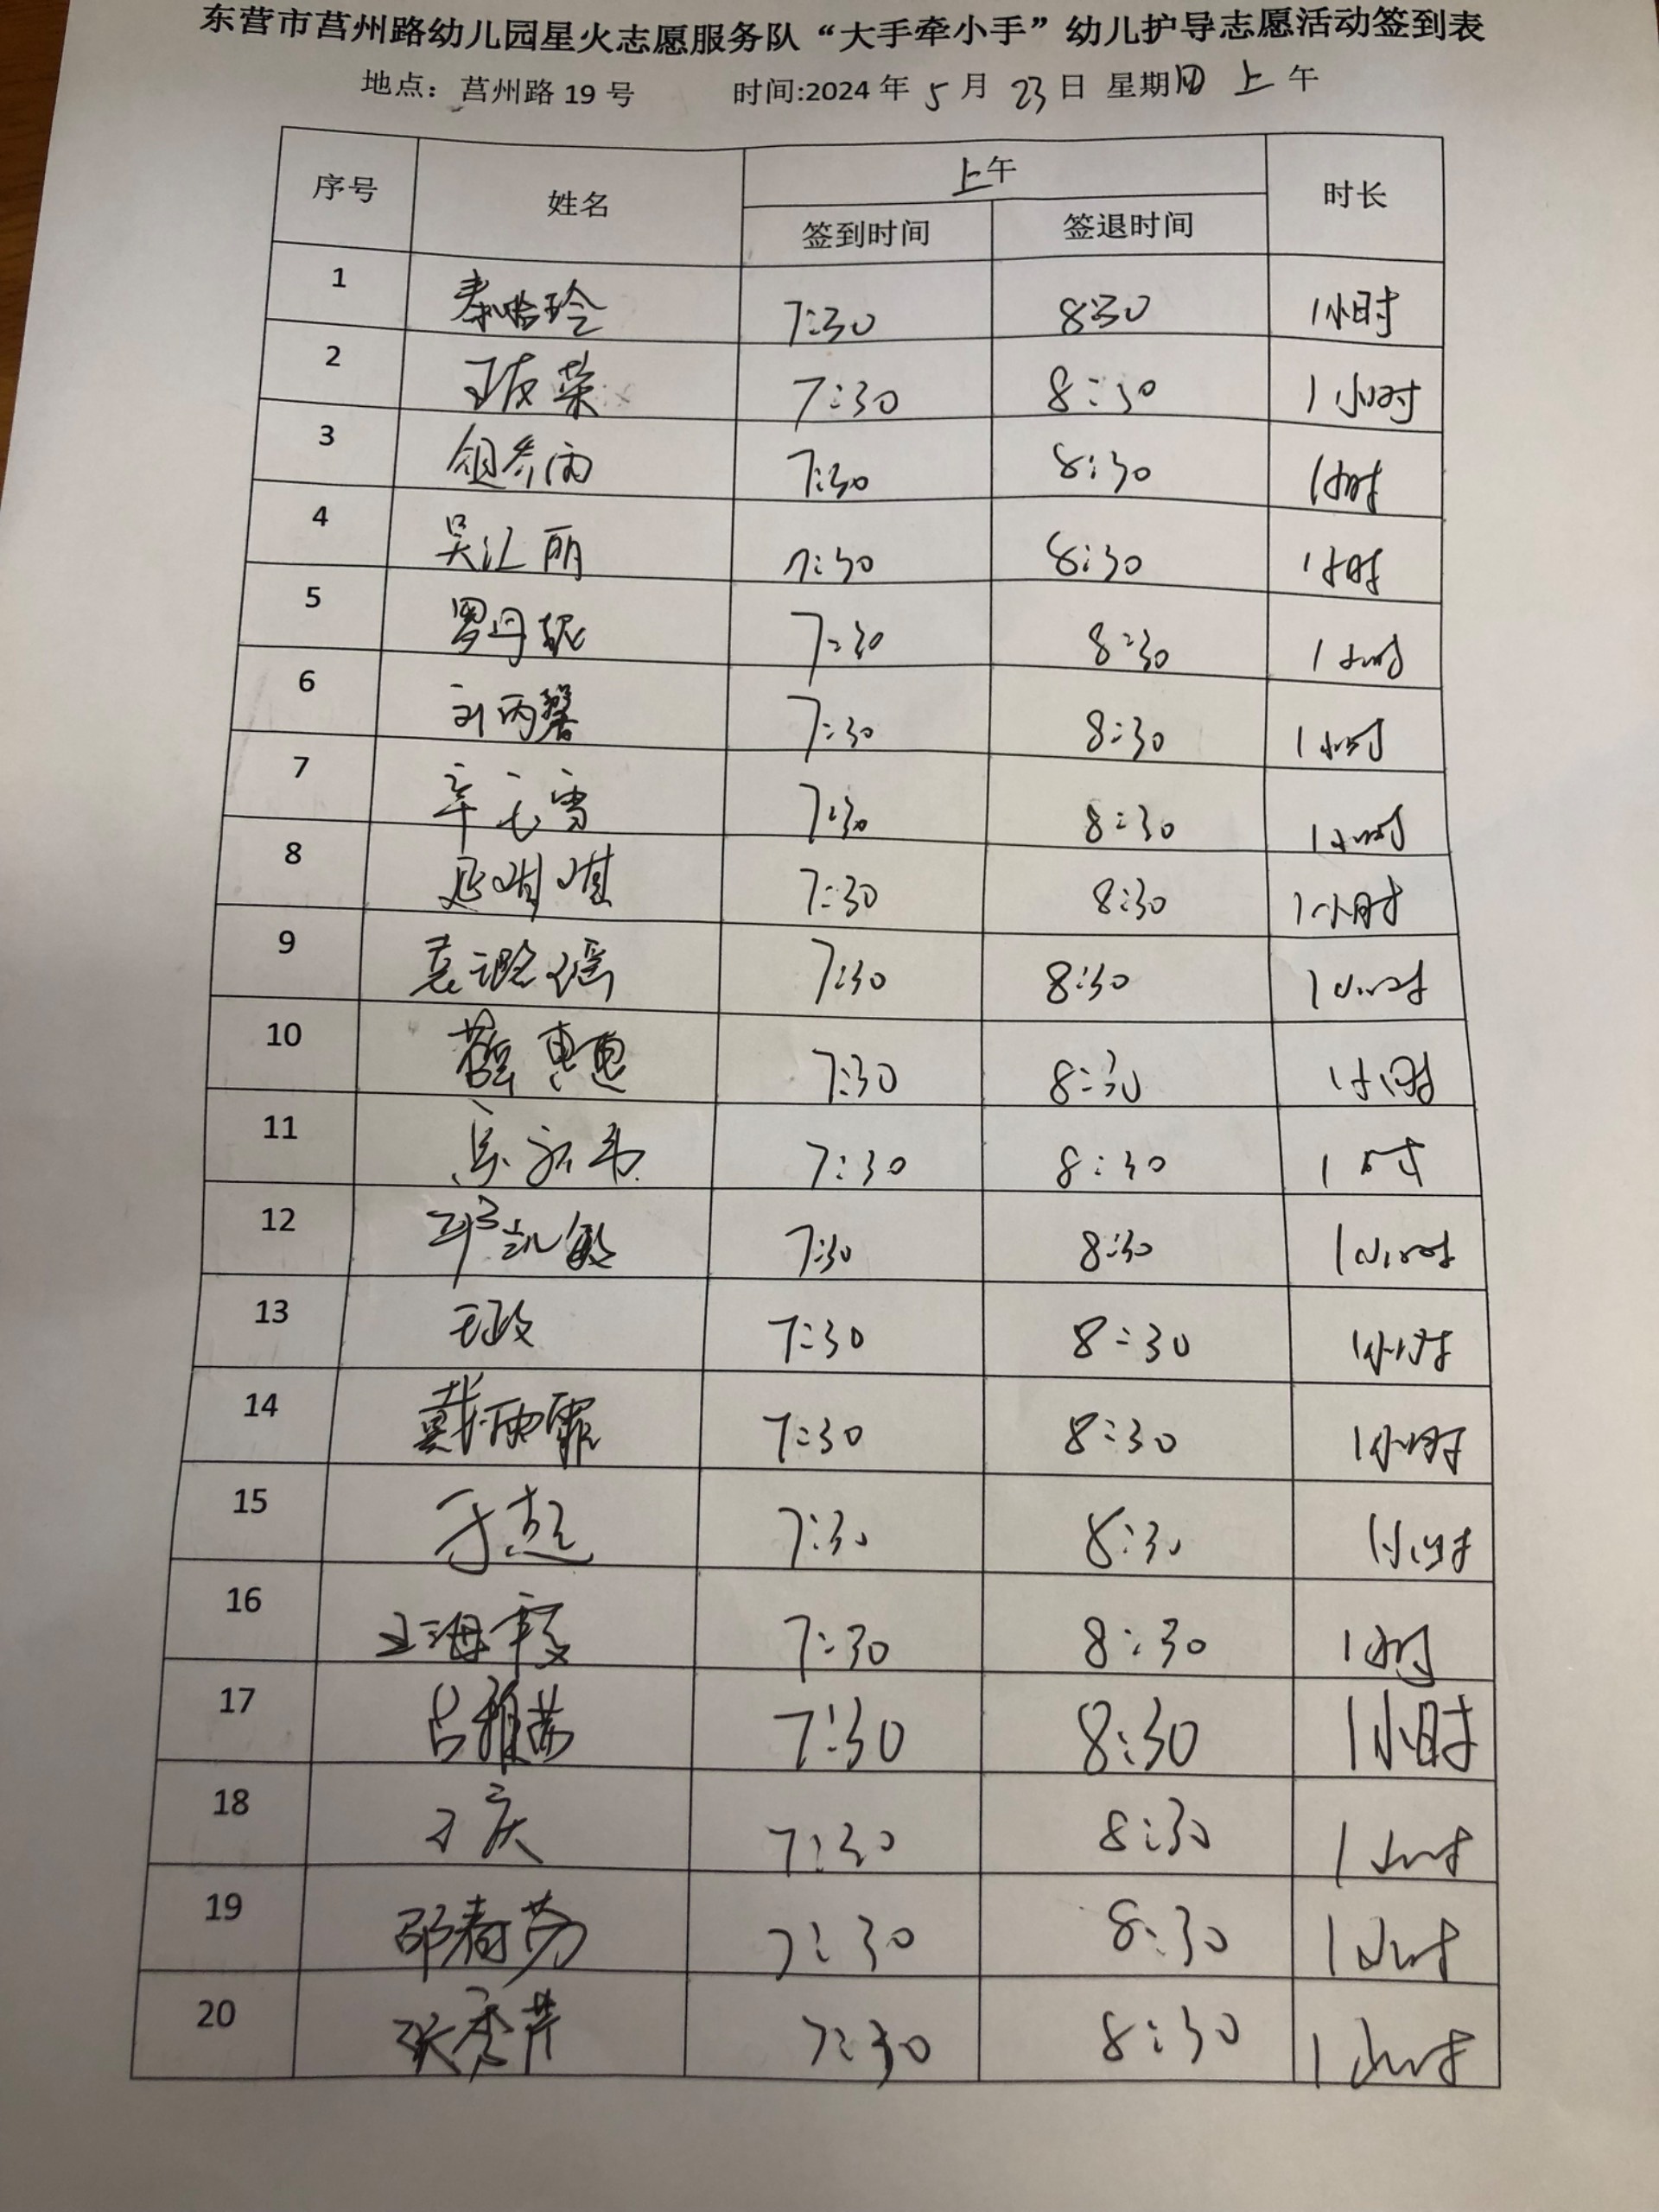 东营市莒州路幼儿园星火志愿服务队“大手牵小手”幼儿护导志愿活动签到表
地点：莒州路 19 号 时间:2024 年 5 月 23 日 星期四 上 午
序号 姓名 上午 时长
签到时间 签退时间
1 7:30 8:30 1小时
2 7:30 8:30 1小时
3 7:30 8:30 1小时
4 吴汇丽 7:30 8:30 1小时
5 罗丹妮 7:30 8:30 1小时
6 刘丙馨 7:30 8:30 1小时
7 7:30 8:30 1小时
8 7:30 8:30 1小时
9 袁璐瑶 7:30 8:30 1小时
10 7:30 8:30 1小时
11 7:30 8:30 1时
12 7:30 8:30 1小时
13 王政 7:30 8:30 1小时
14 戴雨霏 7:30 8:30 1小时
15 于超 7:30 8:30 1小时
16 王海霞 7:30 8:30 1小时
17 吕雅茹 7:30 8:30 1小时
18 7:30 8:30 1小时
19 邵春芳 7:30 8:30 1小时
20 张秀芹 7:30 8:30 1小时